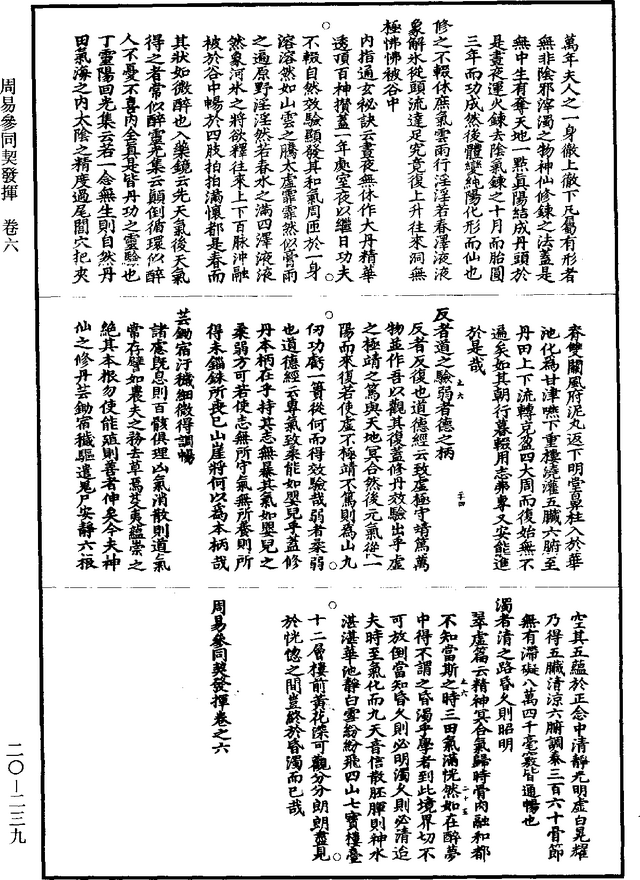 周易參同契發揮　卷六
二〇—二三九
萬年夫人之一身徹上徹下凡屬有形者
無非陰邪滓濁之物神仙修鍊之法蓋是
無中生有奪天地一點真陽結成丹頭於
是晝夜運火鍊去陰氣鍊之十月而胎圓
三年而功成然後體變純陽化形而仙也
修之不輟休庶氣雲雨行淫淫若春澤液液
象解冰從頭流達足究竟復上升往來洞無
極怫怫被谷中
內指通玄秘訣云晝夜無休作大丹精華
透頂百神攢蓋一年處室夜以繼日功夫
不輟自然效驗顯發其和氣周匝於一身
溶溶然如山雲之騰太虛霏霏然似膏雨
之遍原野淫淫然若春水之滿四澤液液
然象河冰之將欲釋往來上下百脉沖融
被於谷中暢於四肢拍拍滿懷都是春而
其狀如微醉也入藥鏡云先天氣後天氣
得之者常似醉靈光集云顛倒循環似醉
人不憂不喜內全真其皆丹功之靈驗也
丁靈陽回光集云若一念無生則自然丹
田氣海之內太陰之精度過尾閭穴把夾
脊雙關風府泥丸返下明堂鼻柱入於華
池化為甘津嚥下重樓澆灌五臟六腑至
丹田上下流轉克盈四大周而復始無不
遍矣如其朝行暮輟用志弗專又安能進
於是哉
反者道之驗弱者德之柄
反者反復也道德經云致虛極守靖篤萬
物並作吾以觀其復蓋修丹效驗出乎虛
之極靖之篤與天地冥合然後元氣從一
陽而來復若使虛不極靖不篤則為山九
仞功虧一簣從何而得效驗哉弱者柔弱
也道德經云專氣致柔能如嬰兒乎蓋修
丹本柄在乎持其志無暴其氣如嬰兒之
柔弱方可若使志無所守氣無所養則所
得未錙銖所喪已山崖將何以為本柄哉
芸鋤宿汙穢細微得調暢
諸慮既息則百骸俱理凶氣消散則道氣
常存譬如農夫之務去草焉芟夷蘊崇之
絕其本根勿使能殖則善者伸矣今夫神
仙之修丹芸鋤宿穢驅遣鬼尸安靜六根
空其五蘊於正念中清靜光明虛白晃耀
乃得五臟清涼六腑調泰三百六十骨節
無有滯礙八萬四千毫竅皆通暢也
濁者清之路昏久則昭明
翠虛篇云精神冥合氣歸時骨肉融和都
不知當斯之時三田氣滿恍然如在醉夢
中得不謂之昏濁乎學者到此境界切不
可放倒當知昏久則必明濁久則必清迨
夫時至氣化而九天音信散胚腪則神水
湛湛華池靜白雪紛紛飛四山七寶樓臺
十二層樓前黃花深可觀分分朗朗盡見
於恍惚之間豈終於昏濁而已哉
周易參同契發揮卷之六